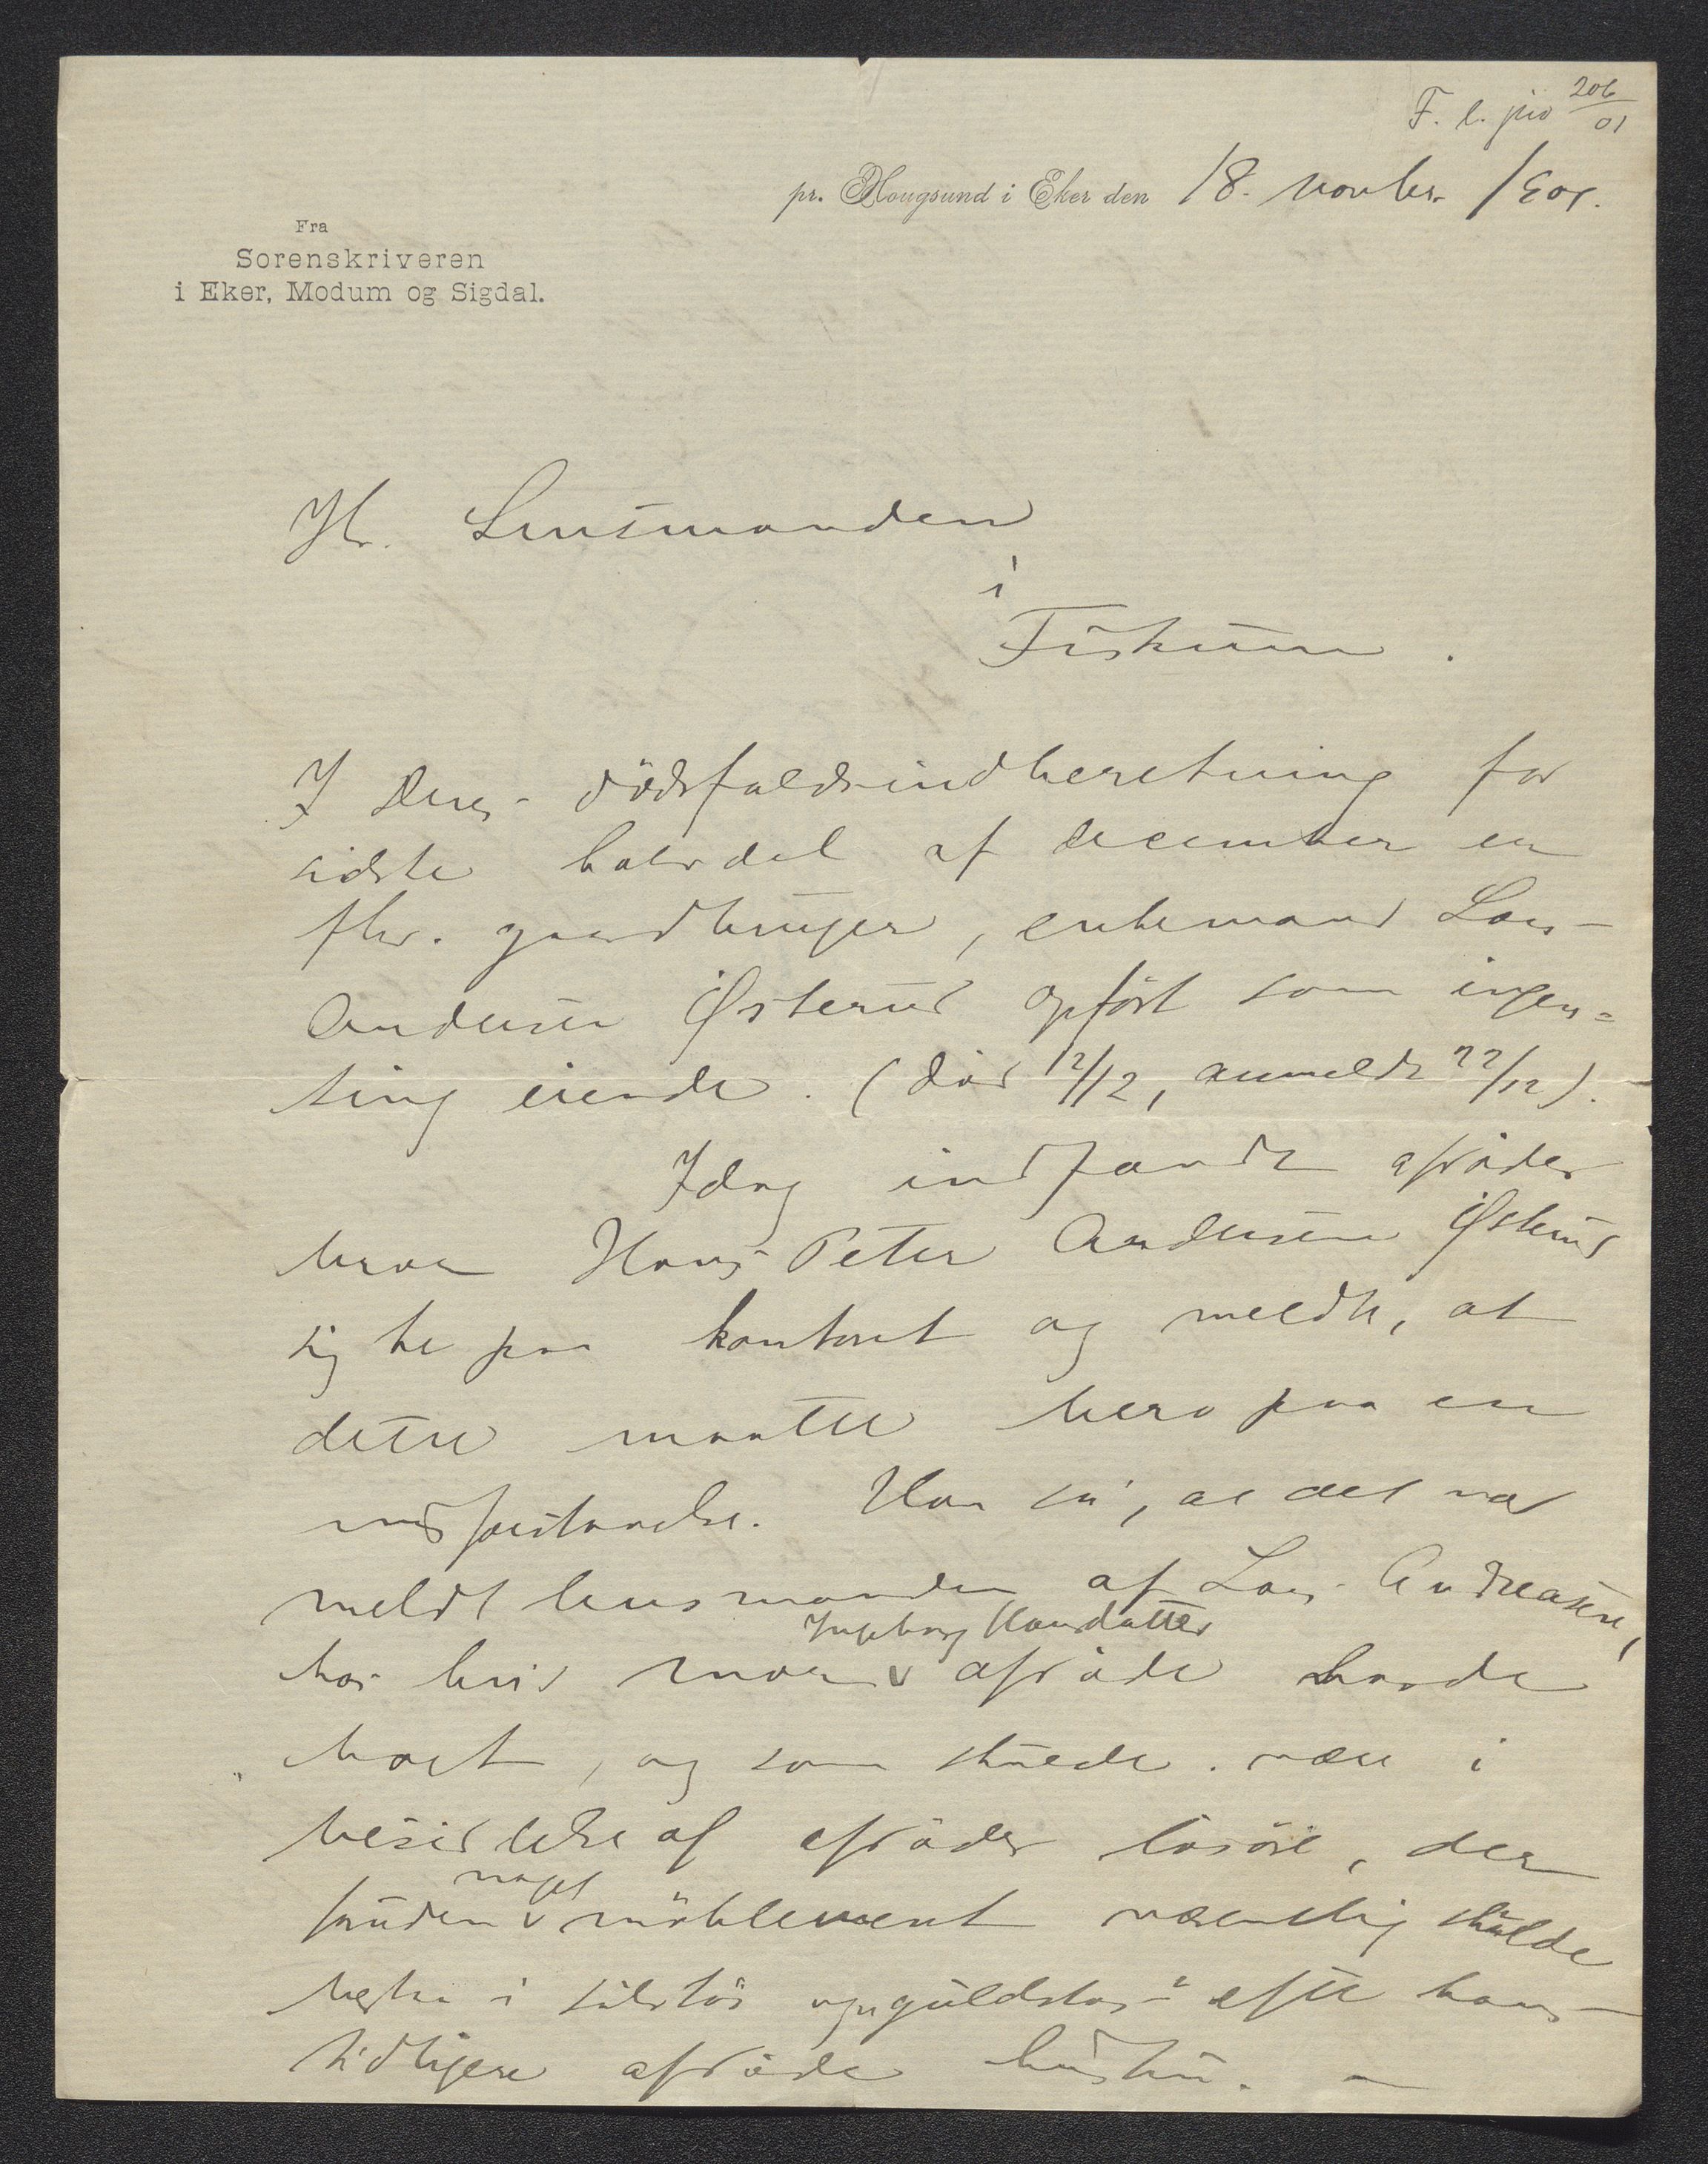 F. l. jno 206/01
pr. Hougsund i Eker den 18. novbr. 1901.
Fra
Sorenskriveren
i Eker, Modum og Sigdal.
Hr. Lensmanden
i
Fiskum.
I Deres dödsfaldsindberetning for
sidste halvdel af december er
fhv. gaardbruger, enkemand Lars
Andersen Østerud opfört som ingen-
ting eiende. (död 12/12, anmeldt 22/12).
Idag indfandt afdödes
bror Hans Peter Andersen Østerud
sig her paa kontoret og meldte, at
dette maatte bero paa en
misforstaaelse. Han sa, at det var
meldt lensmanden af Lars Andreasen,
hos hvis mor v afdöde havde
Ingeborg Hansdatter
boet, og som skulde være i
besiddelse af afdödes lösöre, der
foruden v möblement væsentlig skulde
noget
bestaa i sölvtöi og guldstas efter hans
tidligere afdöde hustru. –